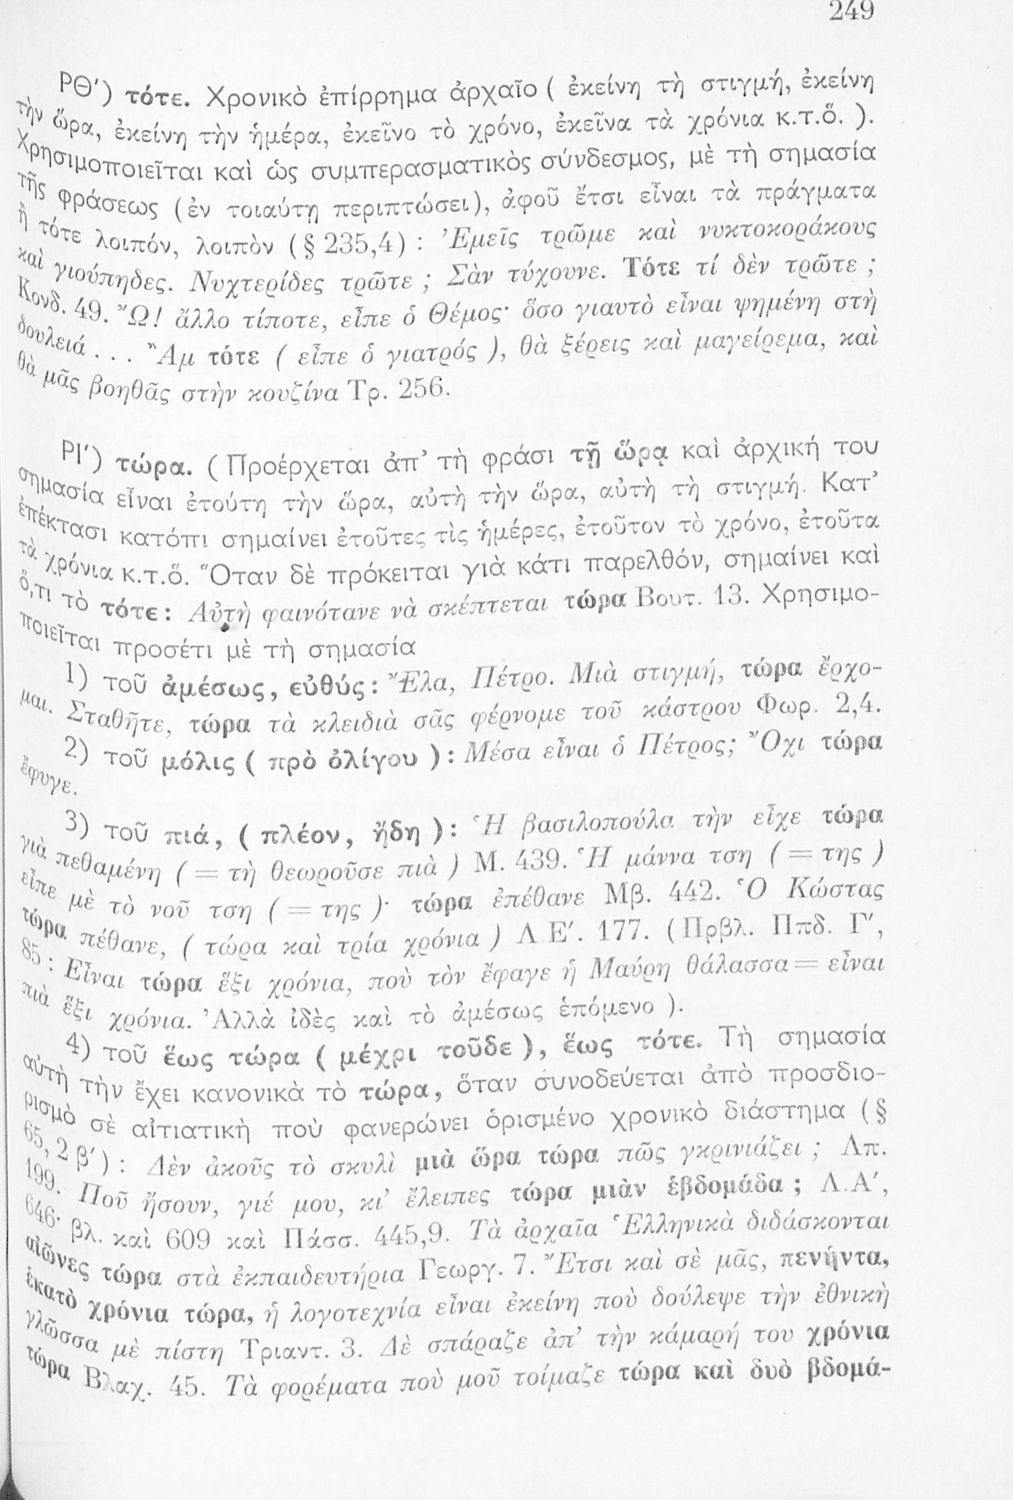 249
ΡΘ′) τότε. Χρονικὸ ἐπίρρημα ἀρχαῖο ( ἐκείνη τὴ στιγμή, ἐκείνη
τὴν ὥρα, ἐκείνη τὴν ἡμέρα, ἐκεῖνο τὸ χρόνο, ἐκεῖνα τὰ χρόνια κ.τ.ὅ. ).
Χρησιμοποιεῖται καὶ ὡς συμπερασματικὸς σύνδεσμος, μὲ τὴ σημασία
τῆς φράσεως (ἐν τοιαύτῃ περιπτώσει), ἀφοῦ ἔτσι εἶναι τὰ πράγματα
ἢ τότε λοιπόν, λοιπὸν (§ 235,4) : Ἐμεῖς τρῶμε καὶ νυκτοκοράκους
καὶ γιούπηδες. Νυχτερίδες τρῶτε ; Σὰν τύχουνε. Τότε τί δὲν τρῶτε ;
Κονδ. 49. Ὤ! ἄλλο τίποτε, εἶπε ὁ Θέμος· ὅσο γιαυτὸ εἶναι ψημένη στὴ
δουλειά . . . Ἂμ τότε ( εἶπε ὁ γιατρός ), θὰ ξέρεις καὶ μαγείρεμα, καὶ
θὰ μᾶς βοηθᾶς στὴν κουζίνα Τρ. 256.
ΡΙ′) τώρα. ( Προέρχεται ἀπ᾽ τὴ φράσι τῇ ὥρᾳ καὶ ἀρχική του
σημασία εἶναι ἐτούτη τὴν ὥρα, αὐτὴ τὴν ὥρα, αὐτὴ τὴ στιγμή. Κατ᾽
ἐπέκτασι κατόπι σημαίνει ἐτοῦτες τὶς ἡμέρες, ἐτοῦτον τὸ χρόνο, ἐτοῦτα
τὰ χρόνια κ.τ.ὅ. Ὅταν δὲ πρόκειται γιὰ κάτι παρελθόν, σημαίνει καὶ
ὅ,τι τὸ τότε : Αὐτὴ φαινότανε νὰ σκέπτεται τώρα Βουτ. 13. Χρησιμο-
ποιεῖται προσέτι μὲ τὴ σημασία
1) τοῦ ἀμέσως, εὐθύς : Ἔλα, Πέτρο. Μιὰ στιγμή, τώρα ἔρχο-
μαι. Σταθῆτε, τώρα τὰ κλειδιὰ σᾶς φέρνομε τοῦ κάστρου Φωρ. 2,4.
2) τοῦ μόλις ( πρὸ ὀλίγου ) : Μέσα εἶναι ὁ Πέτρος; Ὄχι τώρα
ἔφυγε.
3) τοῦ πιά, ( πλέον, ἤδη ) : Ἡ βασιλοπούλα τὴν εἶχε τώρα
γιὰ πεθαμένη ( = τὴ θεωροῦσε πιὰ ) Μ. 439. Ἡ μάννα τση ( = της )
εἶπε μὲ τὸ νοῦ τση ( = της )· τώρα ἐπέθανε Μβ. 442. Ὁ Κώστας
τώρα πέθανε, ( τώρα καὶ τρία χρόνια ) Λ.Ε′. 177. (Πρβλ. Ππδ. Γ′,
85 : Εἶναι τώρα ἕξι χρόνια, ποὺ τὸν ἔφαγε ἡ Μαύρη θάλασσα = εἶναι
πιὰ ἕξι χρόνια. Ἀλλὰ ἰδὲς καὶ τὸ ἀμέσως ἑπόμενο ).
4) τοῦ ἕως τώρα ( μέχρι τοῦδε ), ἕως τότε. Τὴ σημασία
αὐτὴ τὴν ἔχει κανονικὰ τὸ τώρα, ὅταν συνοδεύεται ἀπὸ προσδιο-
ρισμὸ σὲ αἰτιατικὴ ποὺ φανερώνει ὁρισμένο χρονικὸ διάστημα (§
65, 2 β′) : Δὲν ἀκοῦς τὸ σκυλὶ μιὰ ὥρα τώρα πῶς γκρινιάζει ; Λπ.
199. Ποῦ ἤσουν, γιέ μου, κι᾽ ἔλειπες τώρα μιὰν ἑβδομάδα ; Λ.Α′,
646· βλ. καὶ 609 καὶ Πάσσ. 445,9. Τὰ ἀρχαῖα Ἑλληνικὰ διδάσκονται
αἰῶνες τώρα στὰ ἐκπαιδευτήρια Γεωργ. 7. Ἔτσι καὶ σὲ μᾶς, πενήντα,
ἑκατὸ χρόνια τώρα, ἡ λογοτεχνία εἶναι ἐκείνη ποὺ δούλεψε τὴν ἐθνικὴ
γλῶσσα μὲ πίστη Τριαντ. 3. Δὲ σπάραζε ἀπ᾽ τὴν κάμαρή του χρόνια
τώρα Βλαχ. 45. Τὰ φορέματα ποὺ μοῦ τοίμαζε τώρα καὶ δυὸ βδομά-